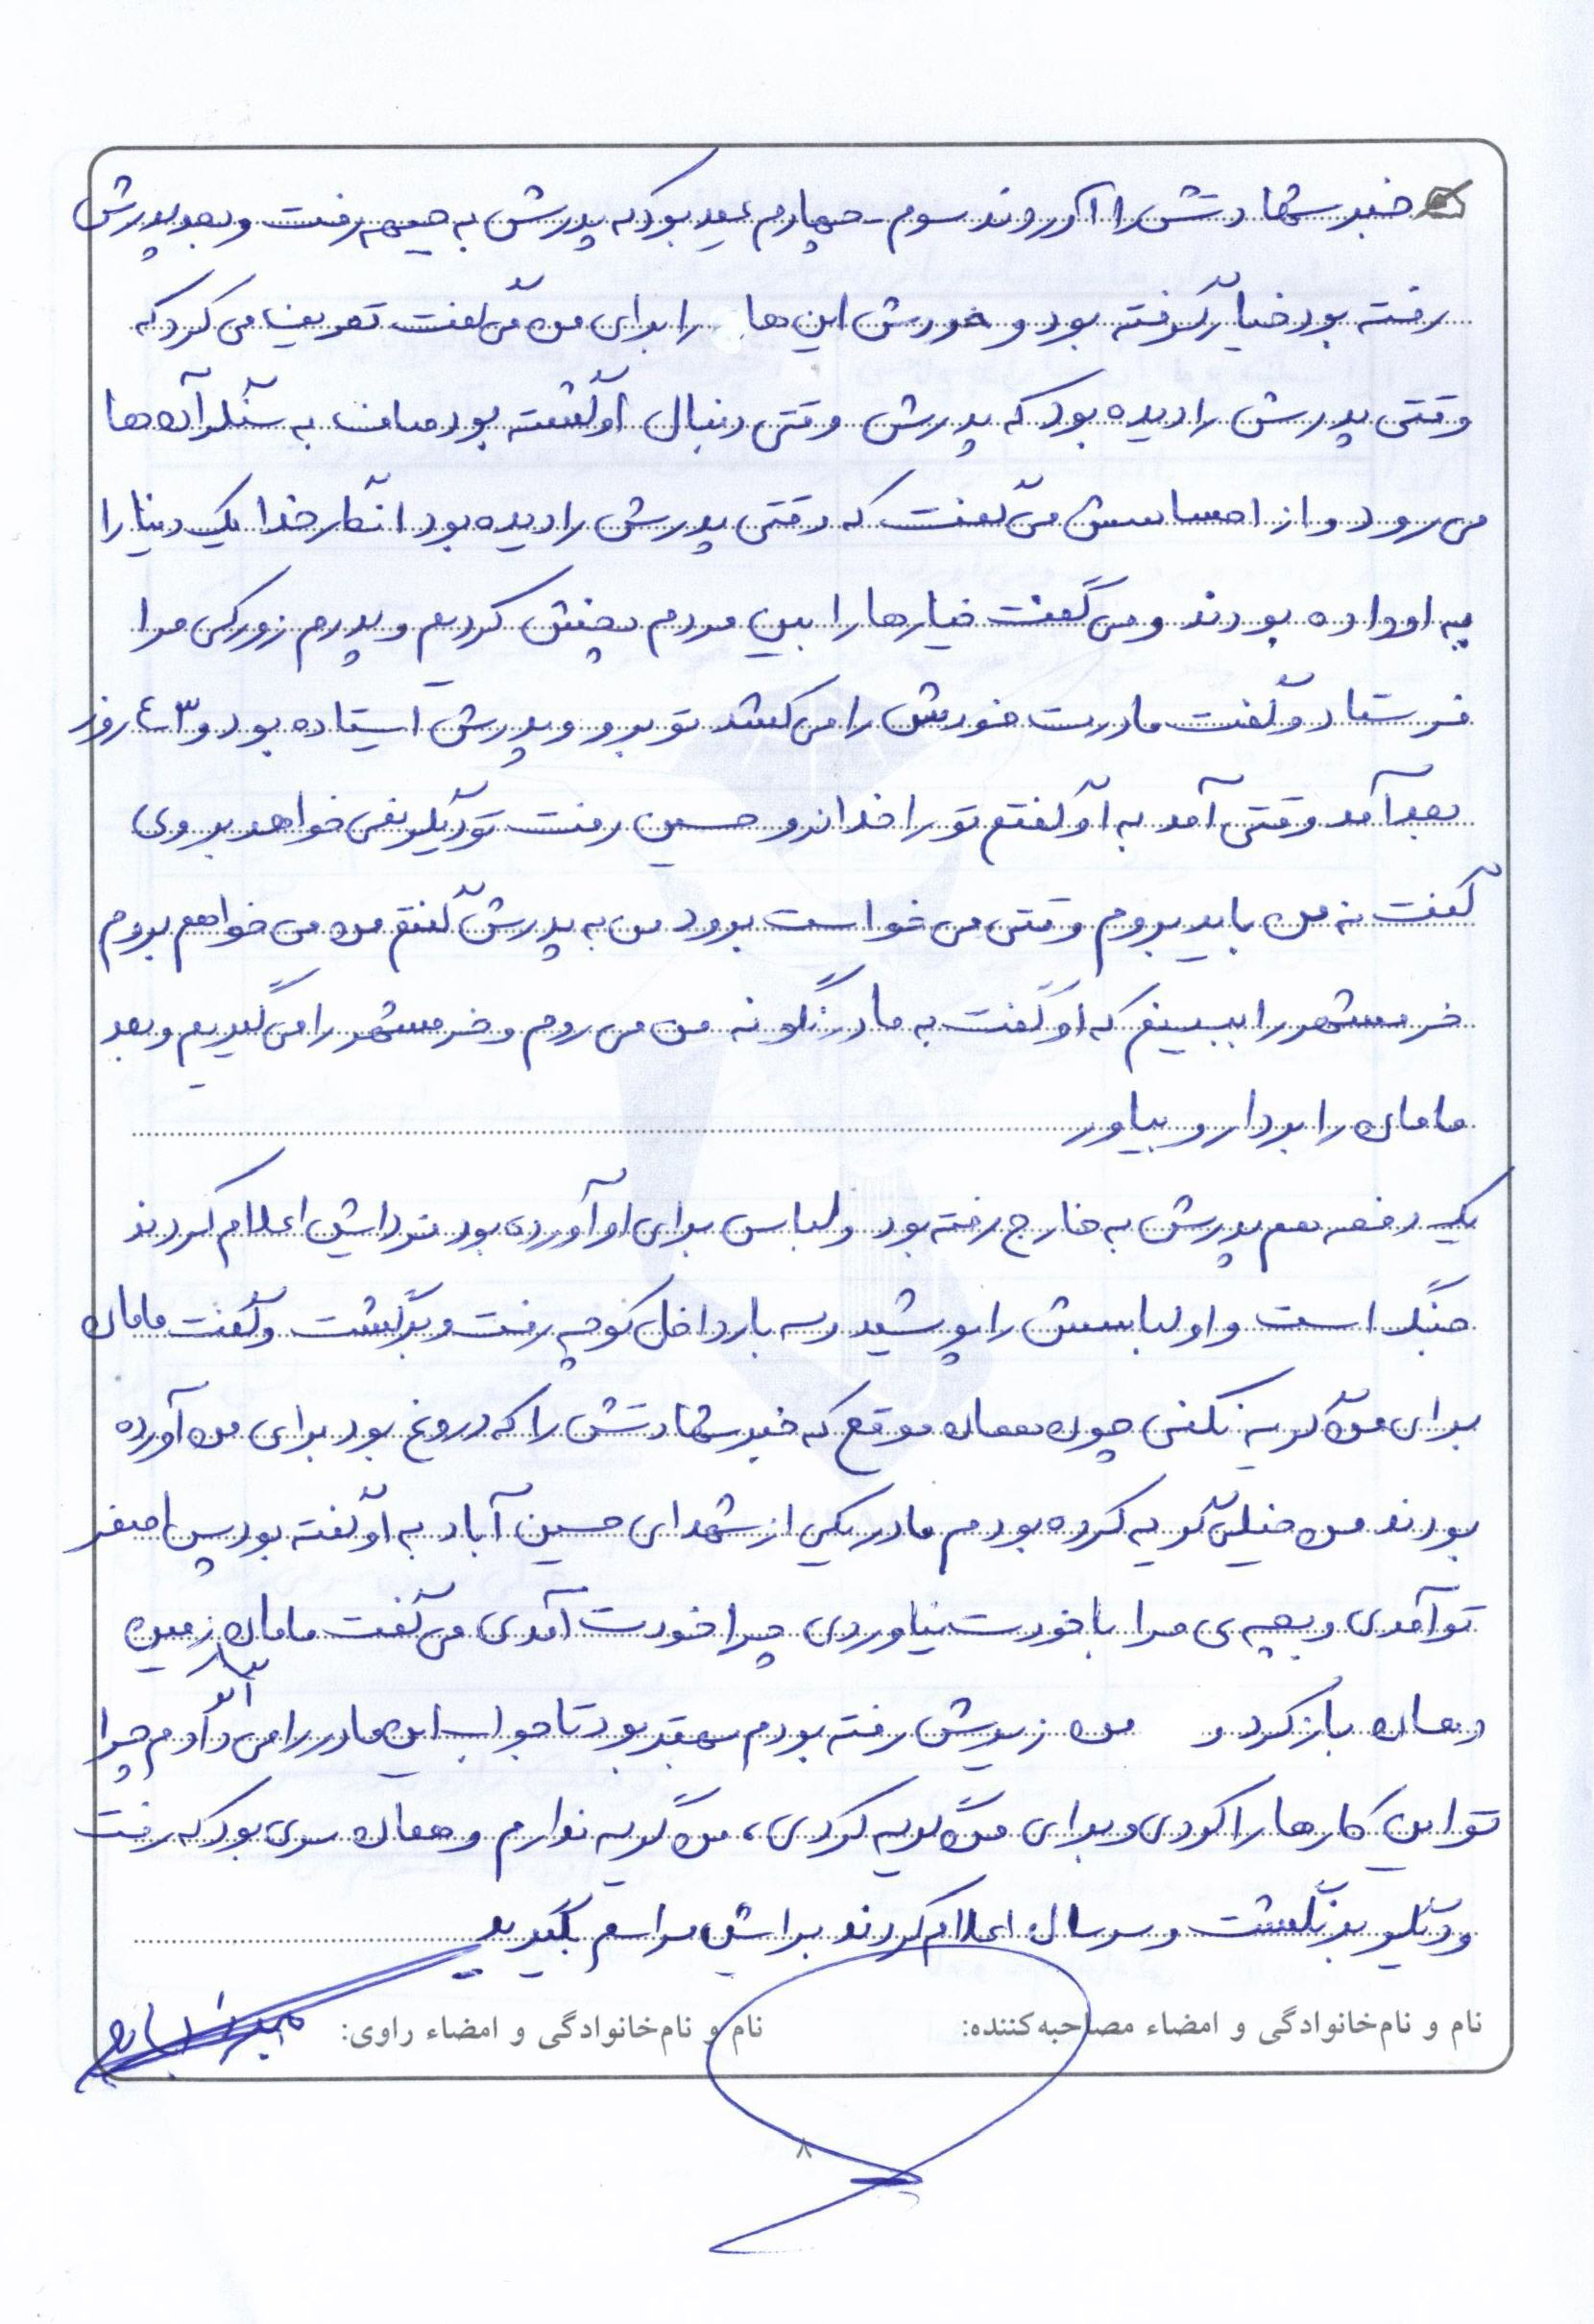 خبر شهادتش را آوردند سوم - چهارم عید بود که پدرش به جبهه رفت و بعد پدرش
رفته بود خیار گرفته بود و خودش این ها را برای من می گفت تعریف می کرد که
وقتی پدرش را دیده بود که پدرش وقتی دنبال او گشته بود صاف به سنگر آن ها
می رود و از احساسش می گفت که وقتی پدرش را دیده بود انگار خدا یک دنیا را
به او داده بودند و می گفت خیارها را بین مردم پخش کردیم و پدرم زورکی مرا
فرستاد و گفت مادرت خودش را می کشد تو برو و پدرش ایستاده بود و ۴۳ روز
بعد آمد وقتی آمد به او گفتم تو را خدا نرو حسین رفت تو دیگر نمی خواهد بروی
گفت نه من باید بروم وقتی می خواست برود من به پدرش گفتم من می خواهم بروم
خرمشهر را ببینم که او گفت به مادر بگو نه من می روم و خرمشهر را می گیریم و بعد
مامان را بردار و بیاور
یک دفعه هم پدرش به خارج رفته بود و لباس برای او آورده بود فرداش اعلام کردند
جنگ است و او لباسش را پوشید و سه بار داخل کوچه رفت و برگشت و گفت مامان
برای من گریه نکنی چون همان موقع که خبر شهادتش را که دروغ بود برای من آورده
بودند من خیلی گریه کرده بودم مادر یکی از شهدای حسین آباد به او گفته بود پس اصغر
تو آمدی و بچه ی مرا با خودت نیاوردی چرا خودت آمدی می گفت مامان زمین
دهان باز کرد و من زیرش رفته بودم بهتر بود تا جواب این مادر را می دادم چرا
تو این کارها را کردی و برای من گریه کردی، من گریه ندارم و همان سری بود که رفت
و دیگر برنگشت و سر سال اعلام کردند برایش مراسم بگیرید
نام و نام‌خانوادگی و امضاء مصاحبه‌کننده: نام و نام‌خانوادگی و امضاء راوی:
۸